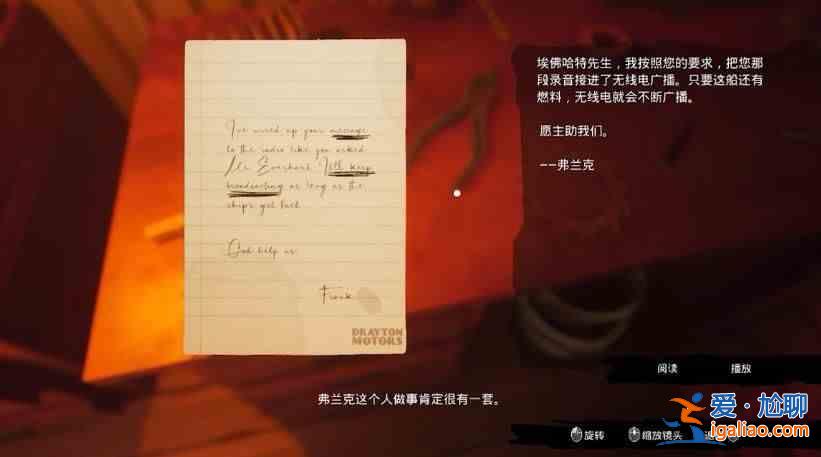 I've wired up your message
to the radio like you asked
Mr Everhart. It'll keep
broadcasting as long as the
ship's got fuel.
God help us.
Frank
DRAYTON
MOTORS
埃佛哈特先生，我按照您的要求，把您那
段录音接进了无线电广播。只要这船还有
燃料，无线电就会不断广播。
愿主助我们。
--弗兰克
阅读
播放
弗兰克这个人做事肯定很有一套。
旋转
缩放镜头
爱·尬聊
igaliao.com